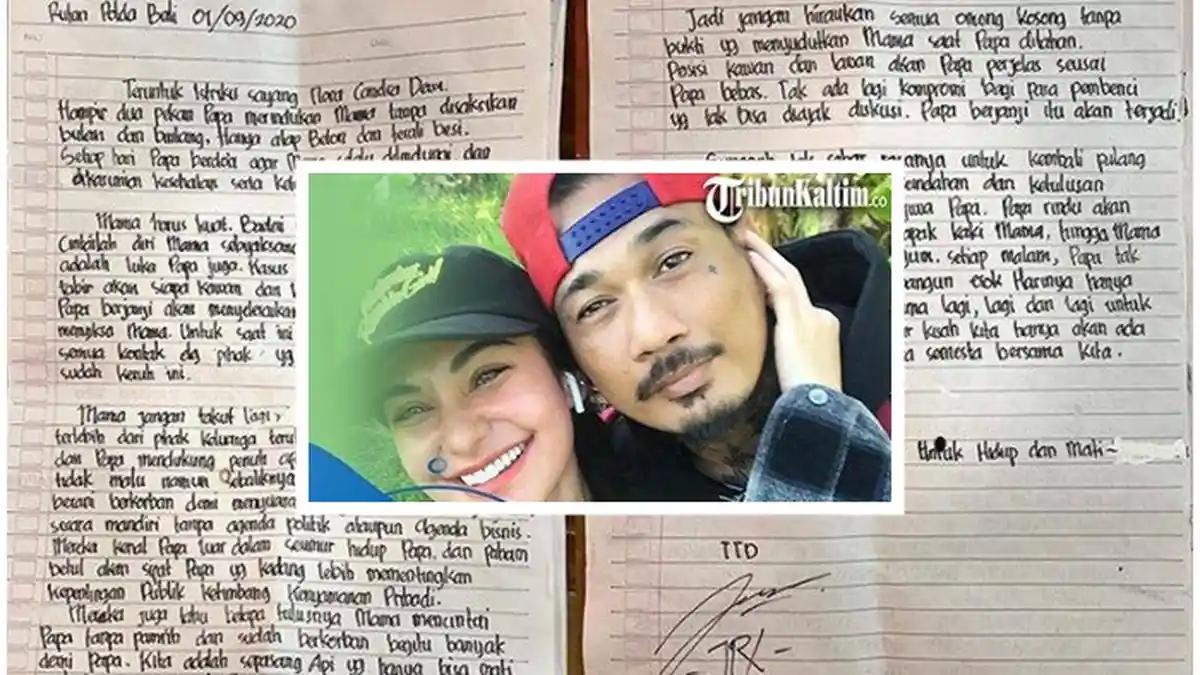 Rutan Polda Bali 01/09/2020
Teruntuk Istriku sayang Nora Candra Dewi.
Hampir dua pekan Papa merindukan Mama tanpa disaksikan
bulan dan bintang. Hanya atap Beton dan terali besi.
Setiap hari Papa berdoa agar Mama selalu dilindungi dan
dikaruniai kesehatan serta
Mama harus kuat. Badai
Cintailah diri Mama
adalah luka Papa juga. Kasus
tabir akan siapa kawan dan
Papa berjanji akan menyelesaikan
Mama. Untuk saat ini
semua kontak dg 'pihak' yg
sudah keruh ini.
Mama jangan takut lagi,
terlebih dari pihak keluarga
dan Papa mendukung penuh
tidak malu namun sebaliknya
berani berkorban demi menyuara
secara mandiri tanpa agenda politik ataupun agenda bisnis.
Mereka kenal Papa luar dalam seumur hidup Papa, dan paham
betul akan sifat Papa yg kadang lebih mementingkan
Kepentingan Publik ketimbang Kenyamanan Pribadi.
Mereka juga tahu betapa tulusnya Mama mencintai
Papa tanpa pamrih dan sudah berkorban begitu banyak
demi Papa. Kita adalah sepasang Api yg hanya bisa mati
Jadi jangan hiraukan semua omong kosong tanpa
bukti yg menyudutkan Mama saat Papa ditahan.
Posisi kawan dan lawan akan Papa perjelas seusai
Papa bebas. Tak ada lagi kompromi bagi para pembenci
yg tak bisa diajak diskusi. Papa berjanji itu akan terjadi!
untuk kembali pulang
dan ketulusan
Papa. Papa rindu akan
kaki Mama, hingga Mama
setiap malam, Papa tak
esok Harinya hanya
lagi, lagi dan lagi untuk
kisah kita hanya akan ada
semesta bersama kita.
Untuk Hidup dan Mati~
TTD
JRX -
TribunKaltim.co